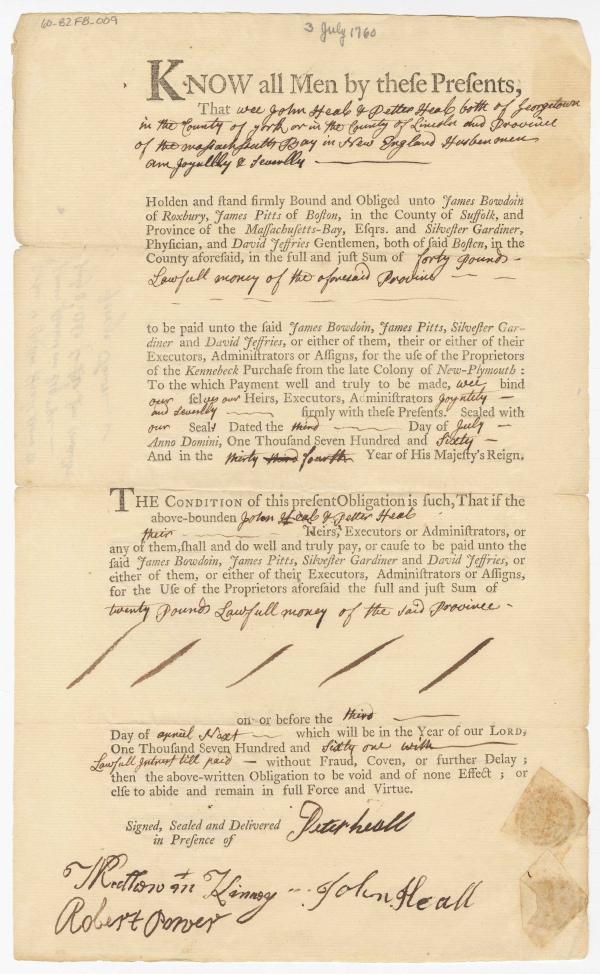 60-BZ FB-009
3 July 1760
KNOW all Men by theſe Preſents,
That wee John Heal & Petter Heal both of Georgetown
in the County of york or in the County of Lincoln and Province
of the massachusetts Bay in New England Husbenmen
are Joyntlly & Severlly
Holden and ſtand firmly Bound and Obliged unto James Bowdoin
of Roxbury, James Pitts of Boſton, in the County of Suffolk, and
Province of the Maſſachuſetts-Bay, Eſqrs. and Silveſter Gardiner,
Phyſician, and David Jeffries Gentlemen, both of ſaid Boſton, in the
County aforeſaid, in the full and juſt Sum of forty Pounds
Lawfull money of the aforesaid Provine
to be paid unto the ſaid James Bowdoin, James Pitts, Silveſter Gar-
diner and David Jeffries, or either of them, their or either of their
Executors, Adminiſtrators or Aſſigns, for the uſe of the Proprietors
of the Kennebeck Purchaſe from the late Colony of New-Plymouth :
To the which Payment well and truly to be made, wee bind
our ſelves our Heirs, Executors, Adminiſtrators Joyntely
and severlly firmly with theſe Preſents. Sealed with
our Seals Dated the third Day of July
Anno Domini, One Thouſand Seven Hundred and Sixty
And in the thirty third fourth Year of His Majeſty's Reign.
THE CONDITION of this preſent Obligation is ſuch, That if the
above-bounden John Heal & Petter Heal
their Heirs, Executors or Adminiſtrators, or
any of them, ſhall and do well and truly pay, or cauſe to be paid unto the
ſaid James Bowdoin, James Pitts, Silveſter Gardiner and David Jeffries, or
either of them, or either of their Executors, Adminiſtrators or Aſſigns,
for the Uſe of the Proprietors aforeſaid the full and juſt Sum of
twenty Pounds Lawfull money of the said Province
on or before the third
Day of aprriel Next which will be in the Year of our LORD,
One Thouſand Seven Hundred and Sixty one with
Lawfull Intrest till paid without Fraud, Coven, or further Delay ;
then the above-written Obligation to be void and of none Effect ; or
elſe to abide and remain in full Force and Virtue.
Signed, Sealed and Delivered
in Preſence of
Peter heall
Kinney
John Heall
Robert Power